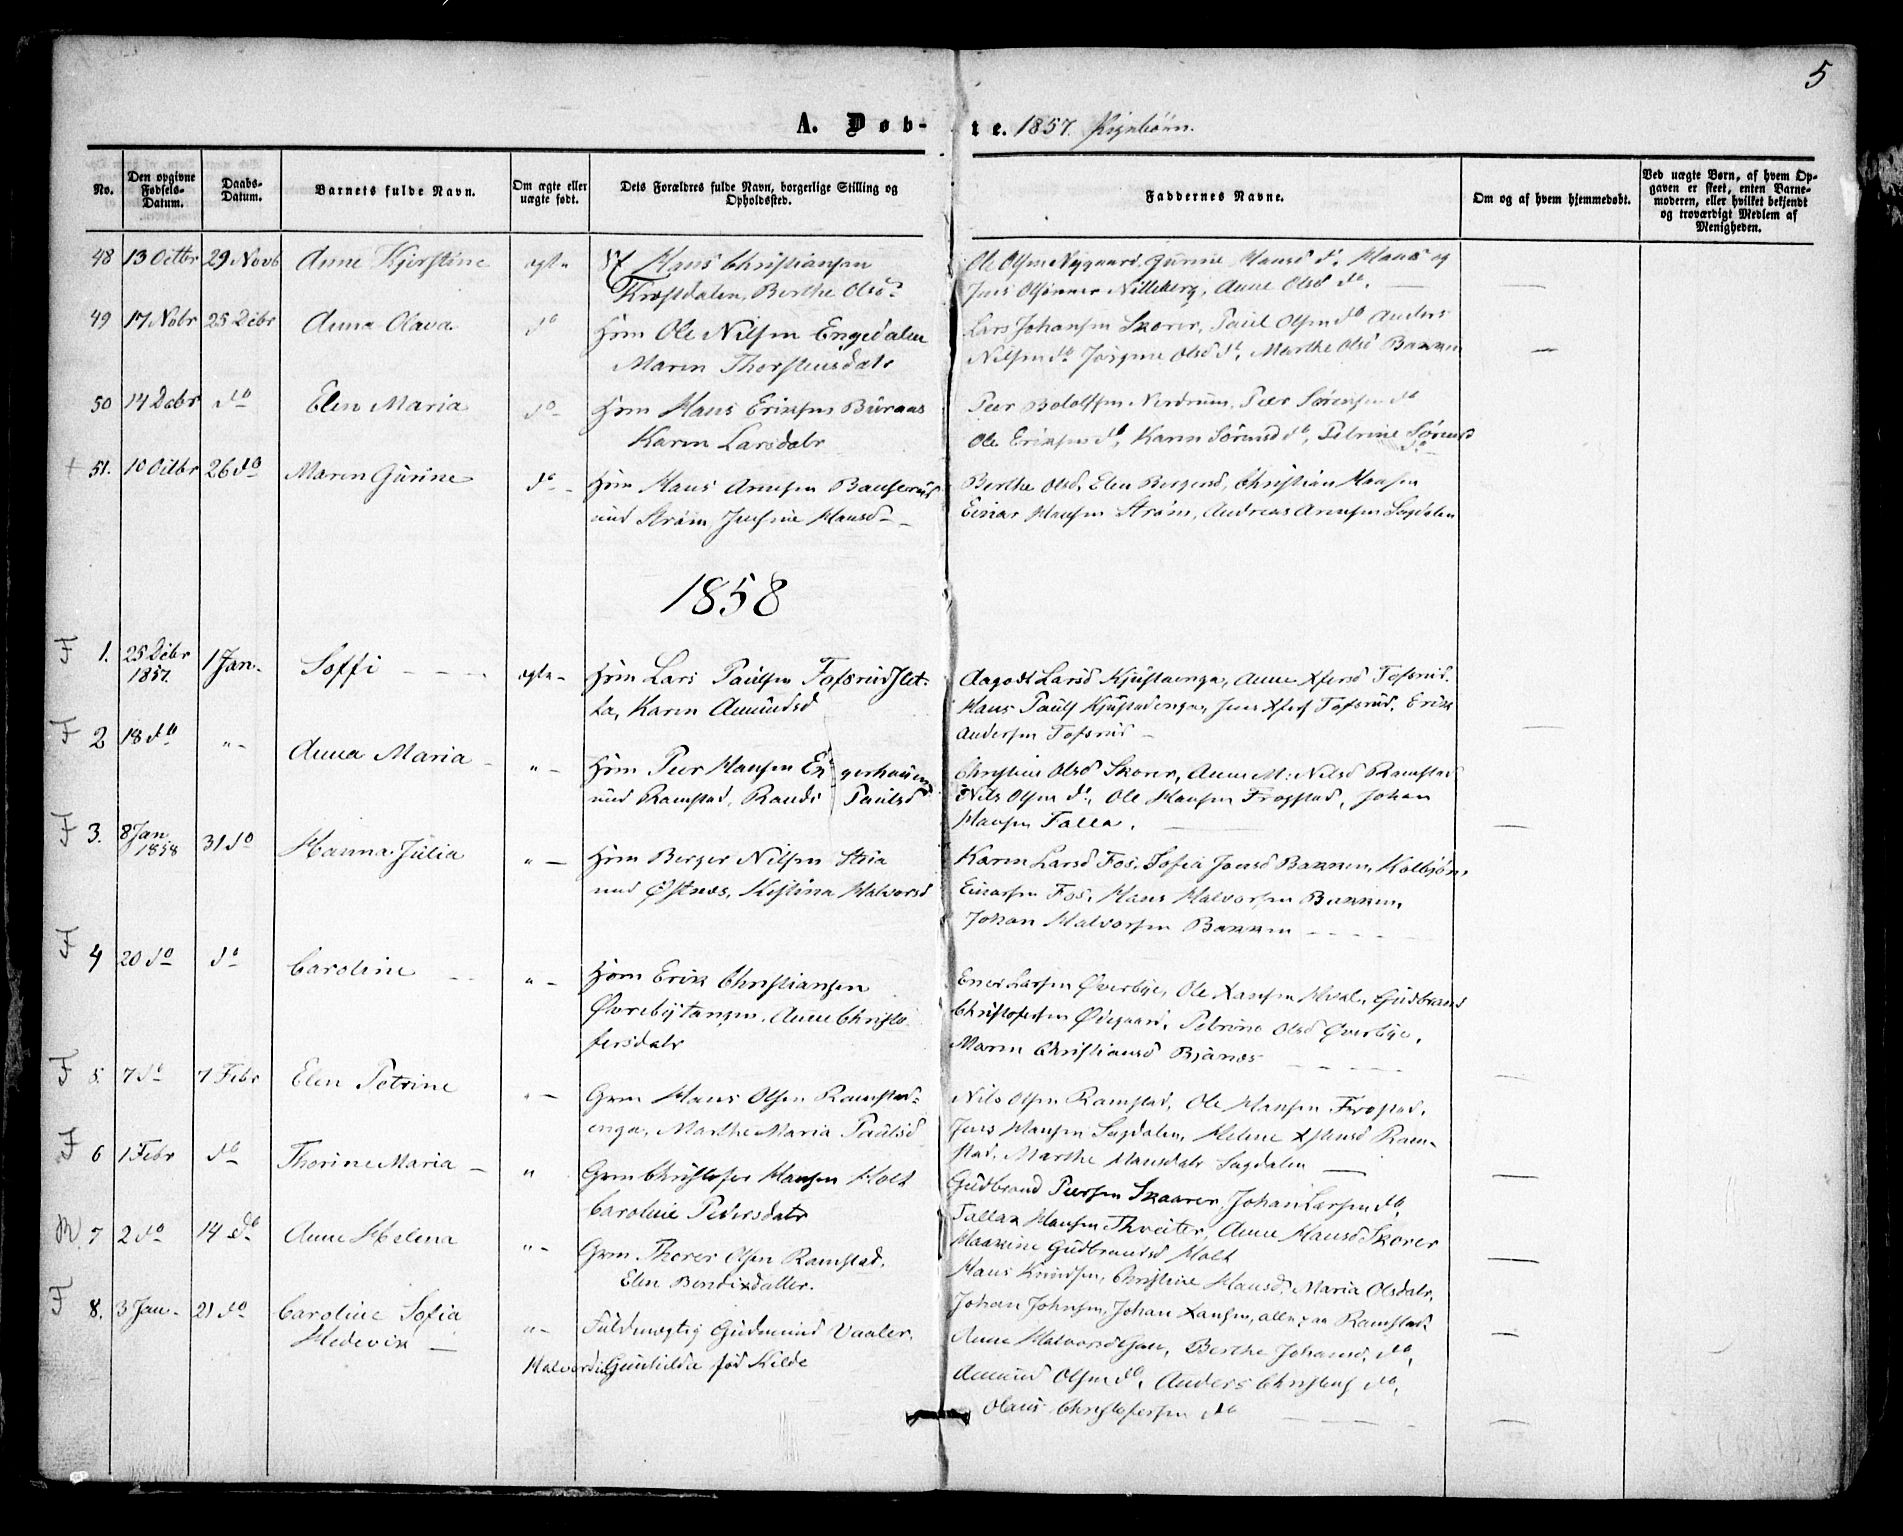 5
A. Døb- te. 1857. Pigebørn.
No.
Den opgivne Fødsels-Datum.
Daabs-Datum.
Barnets fulde Navn.
Om ægte eller uægte født.
Dets Forældres fulde Navn, borgerlige Stilling og Opholdssted.
Faddernes Navne.
Om og af hvem hjemmedøbt.
Ved uægte Børn, af hvem Opgaven er skeet, enten Barnemoderen, eller hvilket bekjendt og troværdigt Medlem af Menigheden.
48 13 Octbr 29 Novb Anne Kjerstine ægte Hans Christiansen
Berthe Olsd. Ole Olsen Nygaard, Gurine Hansd do, Hans og
Jens Olsønner Nilleberg, Anne Olsd do.
49 17 Nobr 25 Debr Anna Olava do Hsm Ole Nilsen Engedalen
Maren Thorstensdatr
Lars Johansen Skorer, Paul Olsen do Anders
Nilsen do Jørgine Olsd do, Marthe Olsd Bakken
50 14 Debr do Elen Maria do Hsm Hans Eriksen Buraas
Karen Larsdatr
Peer Bololfsen Nerdrum, Peer Sørensen do
Ole Eriksen do, Karen Sørensd do, Petrine Sørensd do
51. 10 Octbr 26 do Maren Gurine do Hsm Hans Arnesen Bauserud
und Strøm, Hansd
Berthe Olsd, Elen Bergersd, Christian Hansen
Einar Hansen Strøm, Andreas Arnesen Sagdalen
1858
F 1. 25 Debr 1857. 1 Jan. Soffi ægte Hsm Lars Paulsen Fossrudslet-
ta, Karen Amundsd
Aagodt Larsd Kjustaenga, Anne Xfersd Fossrud.
Hans Pauls Kjustadenga, Jens Xfers Fossrud, Erik
Andersen Fossrud
F 2 18 do " Anna Maria " Hsm Peer Hansen Engerhaugen
und Ramstad, Randi Paulsd
Christine Olsd Skorer, Anne M. Nilsd Ramstad
Nils Olsen do, Ole Hansen Frogstad, Johan
Hansen Falla.
F 3. 8 Jan 1858 31 do Hanna Julia " Hsm Berger Nilsen Stria
und Østnæs, Kistina Halvorsd
Karen Larsd Fos, Sofia Jensd Bakken, Kolbjøn
Einarsen Fos, Hans Halvorsen Bakken,
Johan Halvorsen Bakken
F 4 20 do do Caroline " Hsm Erik Christiansen
Øvrebytangen, Anne Christo
fersdatr
Ener Larsen Øverbye, Ole Hansen Hval, Gudbrand
Christofersen Ødegaard, Petrine Olsd Øverbye,
Maren Christiansd Bjanes
F 5. 7 do 7 Febr Elen Petrine " Grm Hans Olsen Ramstad-
enga, Marthe Maria Paulsd
Nils Olsen Ramstad, Ole Hansen Frostad,
Jens Hansen Sagdalen, Helene Xfersd Ram-
stad, Marthe Hansdatr Sagdalen
F 6 1 Febr do Thorine Maria " Grm Christofer Hansen Holt
Caroline Pedersdatr
Gudbrand Peersen Skaarer, Johan Larsen do,
Fallak Hansen Thveiter, Anne Hansd Skorer
Maarine Gudbrandsd Holt
7 2 do 14 do Anne Helena " Grm Thorer Olsen Ramstad,
Elen Bendixdatter.
Hans Knudsen, Christine Hansd, Maria Olsdatr,
Johan Johnsen, Johan Hansen, alle paa Ramstad.
F 8. 3 Jan. 21 do Caroline Sofia
Hedevik " Fuldmægtig Gudmund Vaaler,
Halvordine Gunhilde fød Kilde
Anne Halvorsd Gan, Berthe Johansd do,
Amund Olsen do, Anders Christens do,
Olaus Christofersen do